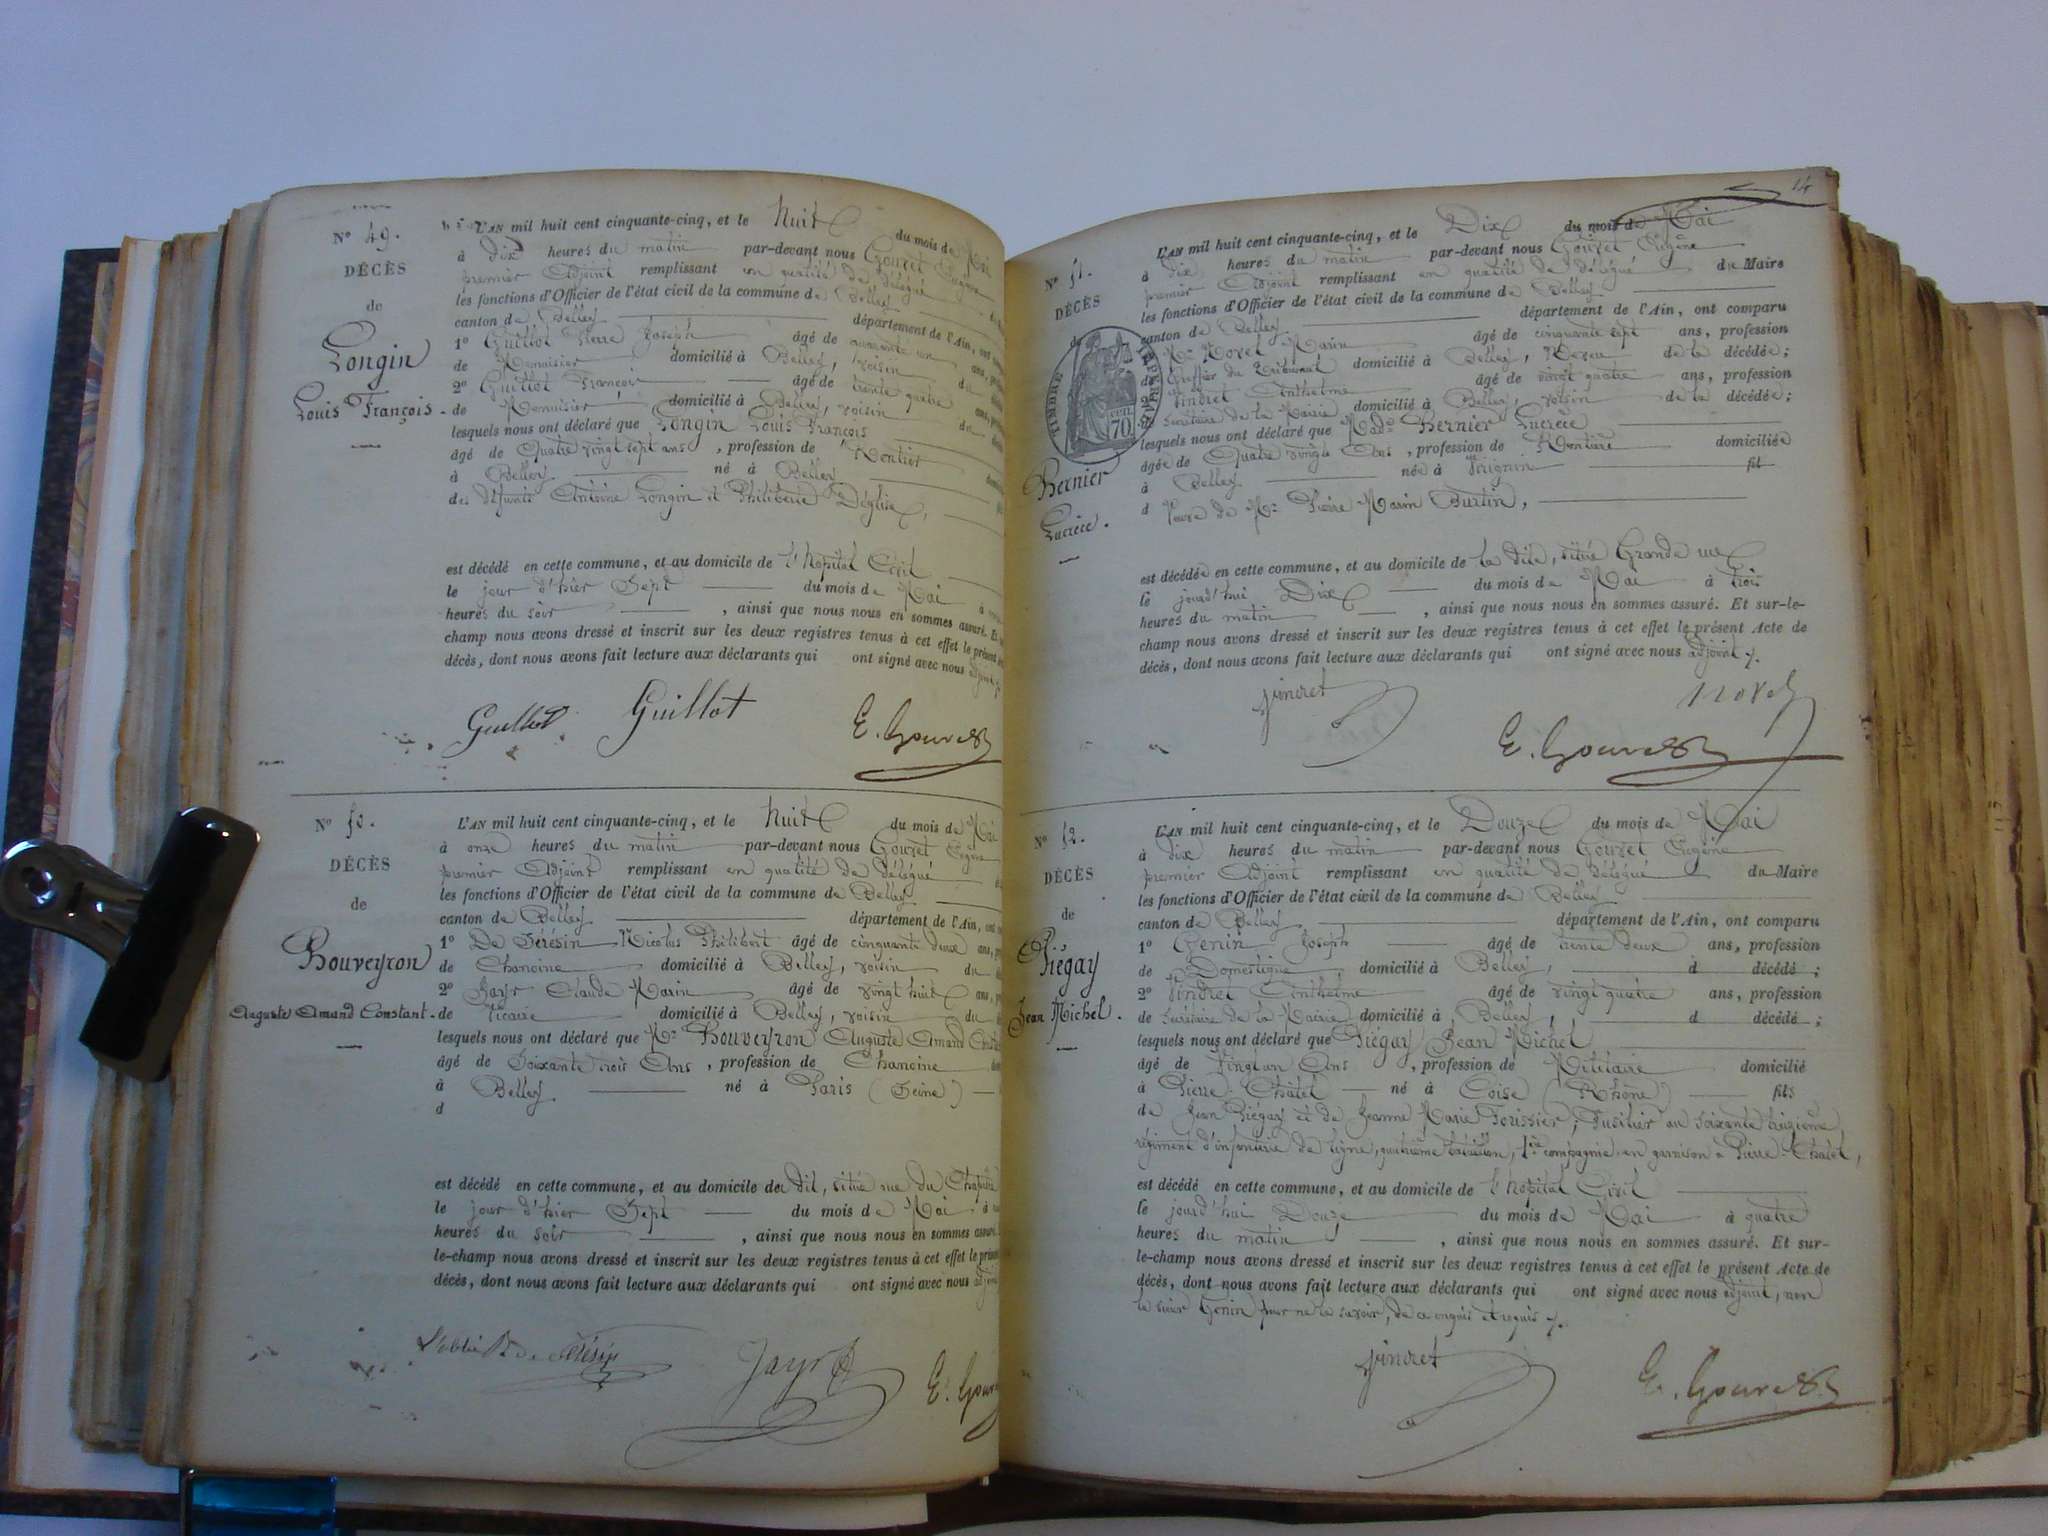 Nº 49.
DÉCÈS
de
Longin
Louis François.
L'AN mil huit cent cinquante-cinq, et le huit du mois de Mai
à dix heures du matin par-devant nous Gouvet Eugène
premier Adjoint remplissant en qualité de délégué
les fonctions d'Officier de l'état civil de la commune de Belley
canton de Belley département de l'Ain, ont
1º Guillot Pierre Joseph âgé de quarante un ans,
de Menuisier domicilié à Belley, voisin du
2º Guillot François âgé de trente quatre ans,
de Menuisier domicilié à Belley, voisin du
lesquels nous ont déclaré que Longin Louis François
âgé de Quatre vingt sept ans, profession de Rentier
à Belley né à Belley
de défunts Antoine Longin et Philiberte Déglise,
est décédé en cette commune, et au domicile de l'hopital Civil
le jour d'hier Sept du mois de Mai à
heures du soir, ainsi que nous nous en sommes assuré. Et
champ nous avons dressé et inscrit sur les deux registres tenus à cet effet le présent
décès, dont nous avons fait lecture aux déclarants qui ont signé avec nous adjoint
Guillot Guillot E. Gouvet
Nº 50.
DÉCÈS
de
Bouveyron
Auguste Amand Constant.
L'AN mil huit cent cinquante-cinq, et le huit du mois de Mai
à onze heures du matin par-devant nous Gouvet Eugène
premier Adjoint remplissant en qualité de délégué
les fonctions d'Officier de l'état civil de la commune de Belley
canton de Belley département de l'Ain,
1º De Sérésin Nicolas Philibert âgé de cinquante deux ans,
de Chanoine domicilié à Belley, voisin du
2º Jayr Claude Marin âgé de vingt huit ans,
de Vicaire domicilié à Belley, voisin du
lesquels nous ont déclaré que Mr Bouveyron Auguste Amand
âgé de Soixante trois Ans, profession de Chanoine
à Belley né à Paris (Seine)
d
est décédé en cette commune, et au domicile du dit, situé rue du Chapitre
le jour d'hier Sept du mois de Mai à
heures du soir, ainsi que nous nous en sommes assuré.
le-champ nous avons dressé et inscrit sur les deux registres tenus à cet effet le présent
décès, dont nous avons fait lecture aux déclarants qui ont signé avec nous adjoint
de Sérésin Jayr E. Gouv
14
Nº 51.
DÉCÈS
de
TIMBRE IMPERIAL
70
Bernier
Lucrèce.
L'AN mil huit cent cinquante-cinq, et le Dix du mois de Mai
à dix heures du matin par-devant nous Gouvet Eugène
premier Adjoint remplissant en qualité de délégué du Maire
les fonctions d'Officier de l'état civil de la commune de Belley
canton de Belley département de l'Ain, ont comparu
Mr Novel Marin âgé de cinquante sept ans, profession
de Greffier du Tribunal domicilié à Belley, Neveu de la décédée;
2º Vindret Anthelme âgé de vingt quatre ans, profession
de Secrétaire de la Mairie domicilié à Belley, voisin de la décédée;
lesquels nous ont déclaré que Made Bernier Lucrèce
âgée de Quatre vingts Ans, profession de Rentière domiciliée
à Belley née à Peignin fil
d Veuve de Mr Pierre Marin Burtin,
est décédée en cette commune, et au domicile de la dite, situé Grande rue
le jourd'hui Dix du mois de Mai à trois
heures du matin, ainsi que nous nous en sommes assuré. Et sur-le-
champ nous avons dressé et inscrit sur les deux registres tenus à cet effet le présent Acte de
décès, dont nous avons fait lecture aux déclarants qui ont signé avec nous adjoint.
Vindret Novel
E. Gouvet
Nº 52.
DÉCÈS
de
Piégay
Jean Michel.
L'AN mil huit cent cinquante-cinq, et le Douze du mois de Mai
à dix heures du matin par-devant nous Gouvet Eugène
premier Adjoint remplissant en qualité de délégué du Maire
les fonctions d'Officier de l'état civil de la commune de Belley
canton de Belley département de l'Ain, ont comparu
1º Genin Joseph âgé de trente deux ans, profession
de Domestique domicilié à Belley, d décédé;
2º Vindret Anthelme âgé de vingt quatre ans, profession
de Secrétaire de la Mairie domicilié à Belley, d décédé;
lesquels nous ont déclaré que Piégay Jean Michel
âgé de Vingt un Ans, profession de Militaire domicilié
à Pierre-Châtel né à Coise (Rhône) fils
de Jean Piégay et de Jeanne Marie Forissier, Fusilier au soixante treizième
régiment d'infanterie de ligne, quatrième bataillon, 1re compagnie en garnison à Pierre-Châtel,
est décédé en cette commune, et au domicile de l'hopital Civil
le jourd'hui Douze du mois de Mai à quatre
heures du matin, ainsi que nous nous en sommes assuré. Et sur-
le-champ nous avons dressé et inscrit sur les deux registres tenus à cet effet le présent Acte de
décès, dont nous avons fait lecture aux déclarants qui ont signé avec nous adjoint, non
le sieur Genin pour ne le savoir, de ce enquis et requis.
Vindret E. Gouvet